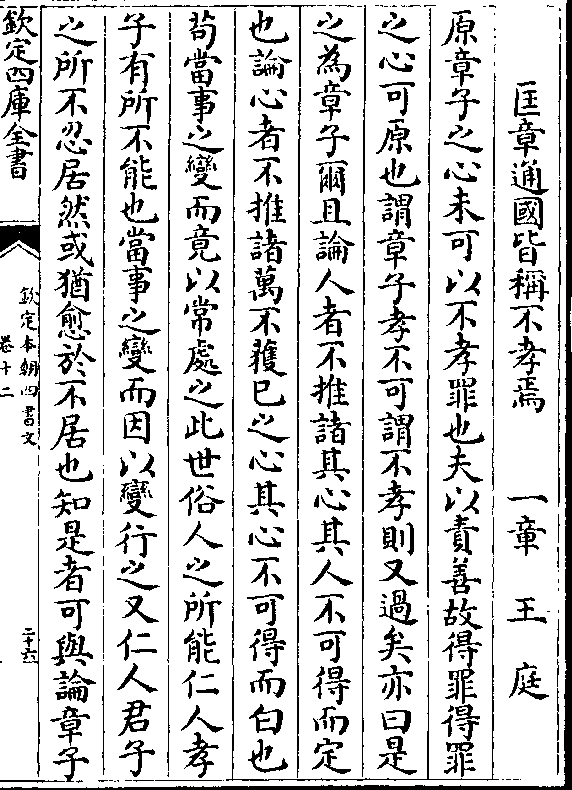 匡章通國皆稱不孝焉　一章　王　庭
原章子之心未可以不孝罪也夫以責善故得罪得罪
之心可原也謂章子孝不可謂不孝則又過矣亦曰是
之為章子爾且論人者不推諸其心其人不可得而定
也論心者不推諸萬不獲已之心其心不可得而白也
茍當事之變而竟以常處之此世俗人之所能仁人孝
子有所不能也當事之變而因以變行之又仁人君子
之所不忍居然或猶愈於不居也知是者可與論章子
欽定四庫全書
欽定本朝四書文
卷十二
二十六